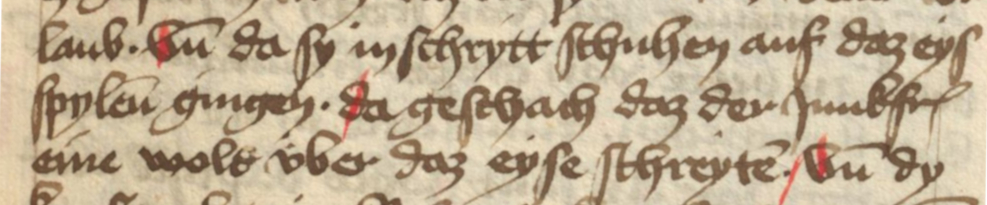 laub. vn̄ da sy in schrytt schuhen auf daz eys
spylen̄ gingen. da geschach daz der Junkfr
eine wolt vber daz eyse schreytē. vn̄ dy